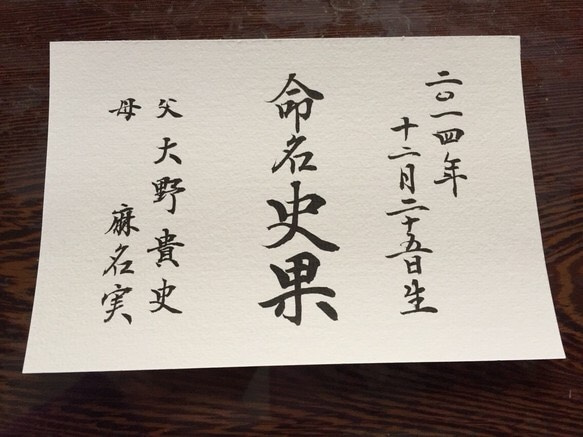 二〇一四年
十二月二十五日生
命名 史果
父 大野貴史
母 麻名実